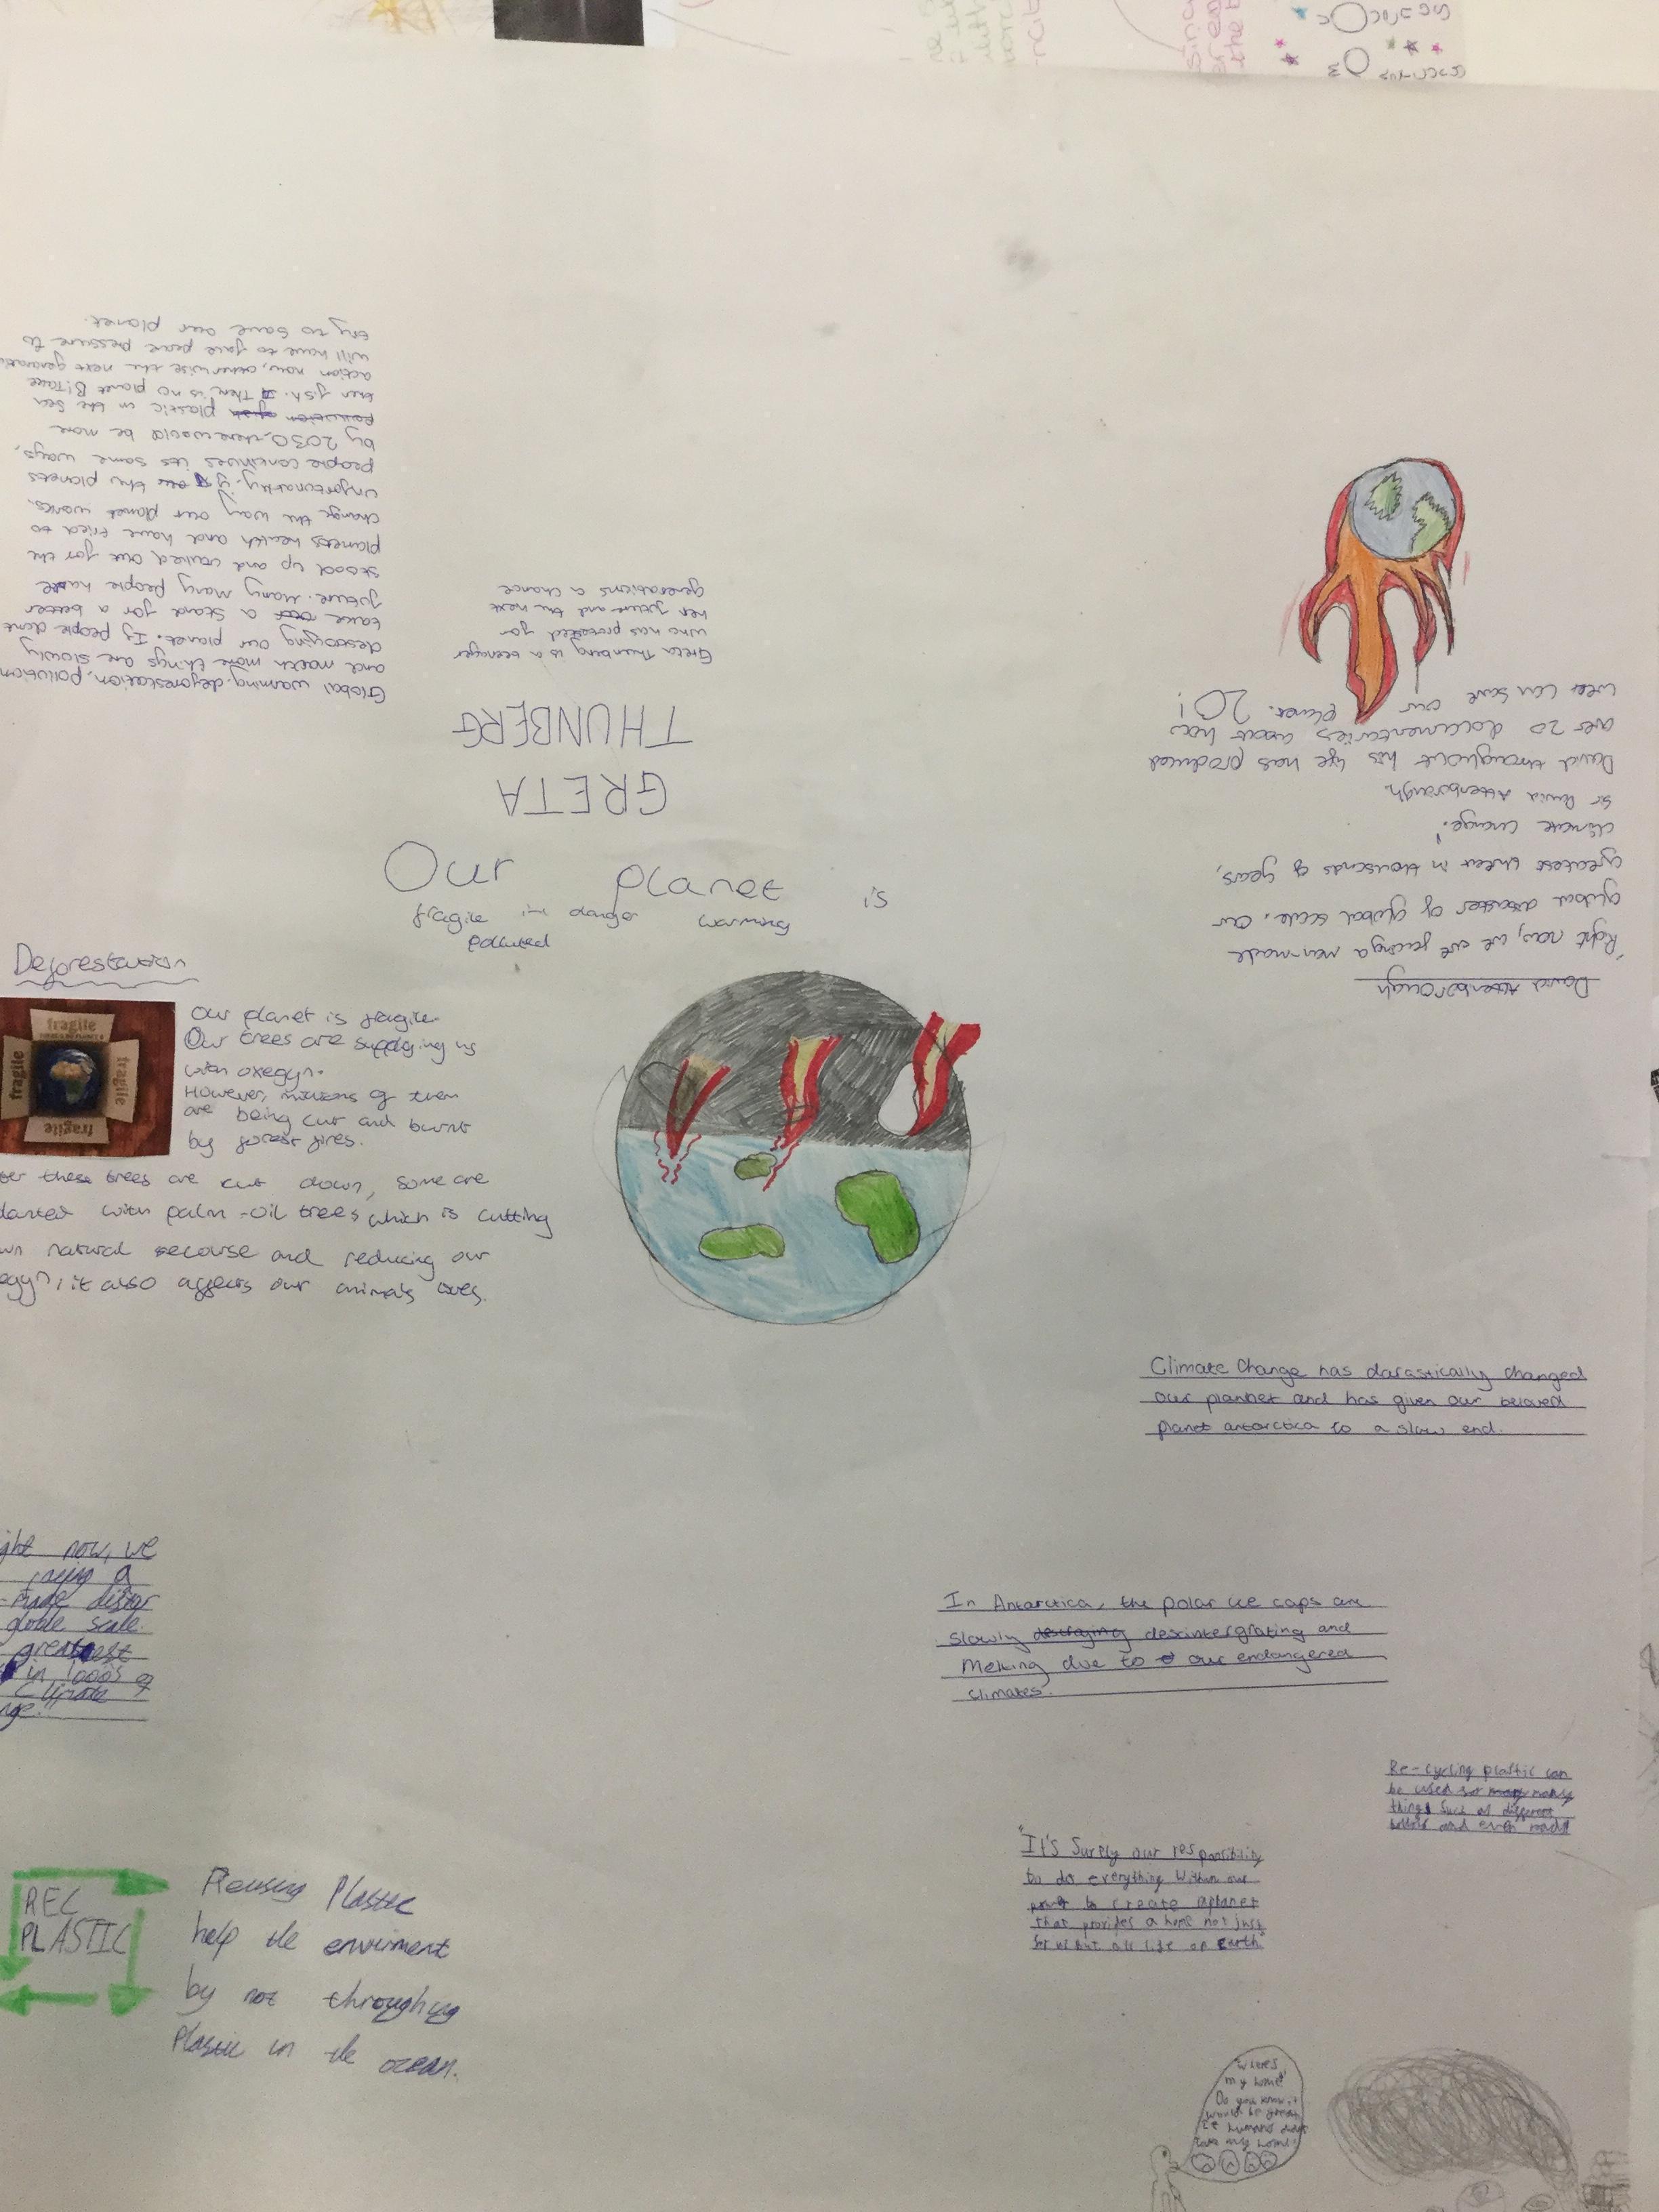 Our planet is
fragile in danger warming
polluted
GRETA
THUNBERG
Greta Thunberg is a teenager
who has protested for
her future and the next
generations a chance
Global warming, deforestation, pollution
and match more things are slowly
destroying our planet. If people dont
take a stand for a better
future. Many many people have
stood up and called out for the
planets health and have tried to
change the way our planet works.
unfortunatly, if the planets
people continues its same ways,
by 2030, there would be more
plastic in the sea
then fish. There is no planet B! Take
action now, otherwise the next generati
will have to face peace pressure to
try to save our planet.
David Attenborough
'Right now, we are facing a man-made
global disaster of global scale. Our
greatest threat in thousands of years,
climate change.'
Sir David Attenborough.
David throughout his life has produced
over 20 documentaries about how
we can save our planet. 20!
Deforestation
fragile
fragile
fragile
fragile
Our planet is fragile.
Our trees are supplying us
with oxegyn.
However, millions of them
are being cut and burnt
by forest fires.
ter these trees are cut down, some are
lanted with palm-oil trees which is cutting
wn natural recourse and reducing our
egyn, it also affects our animals lives.
Climate Change has darastically changed
our plannet and has given our beloved
planet antarctica to a slow end.
ght now, we
acing a
-made distar
globle scale.
greatest
in 1000's of
Climate
nge!!
In Antarctica, the polar ice caps are
slowly destraying desintergrating and
Melting due to our endangered
climates.
Re-cycling plastic can
be used for many many
things such as different
bottles and even
"It's Surely our responsibility
to do everything within our
power to create a planet
that provides a home not just
for us but all life on Earth"
REC
PLASTIC
Reusing Plastic
help the envirment
by not throughing
Plastic in the ocean.
Wheres
my home?
Do you know it
would be great
if humans didnt
take my home!